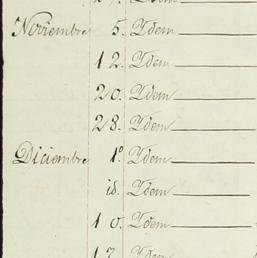 Idem
Noviembre 5. Ydem
12. Ydem
20. Ydem
28. Ydem
Diciembre 1º Ydem
id. Ydem
10. Ydem
17. Ydem